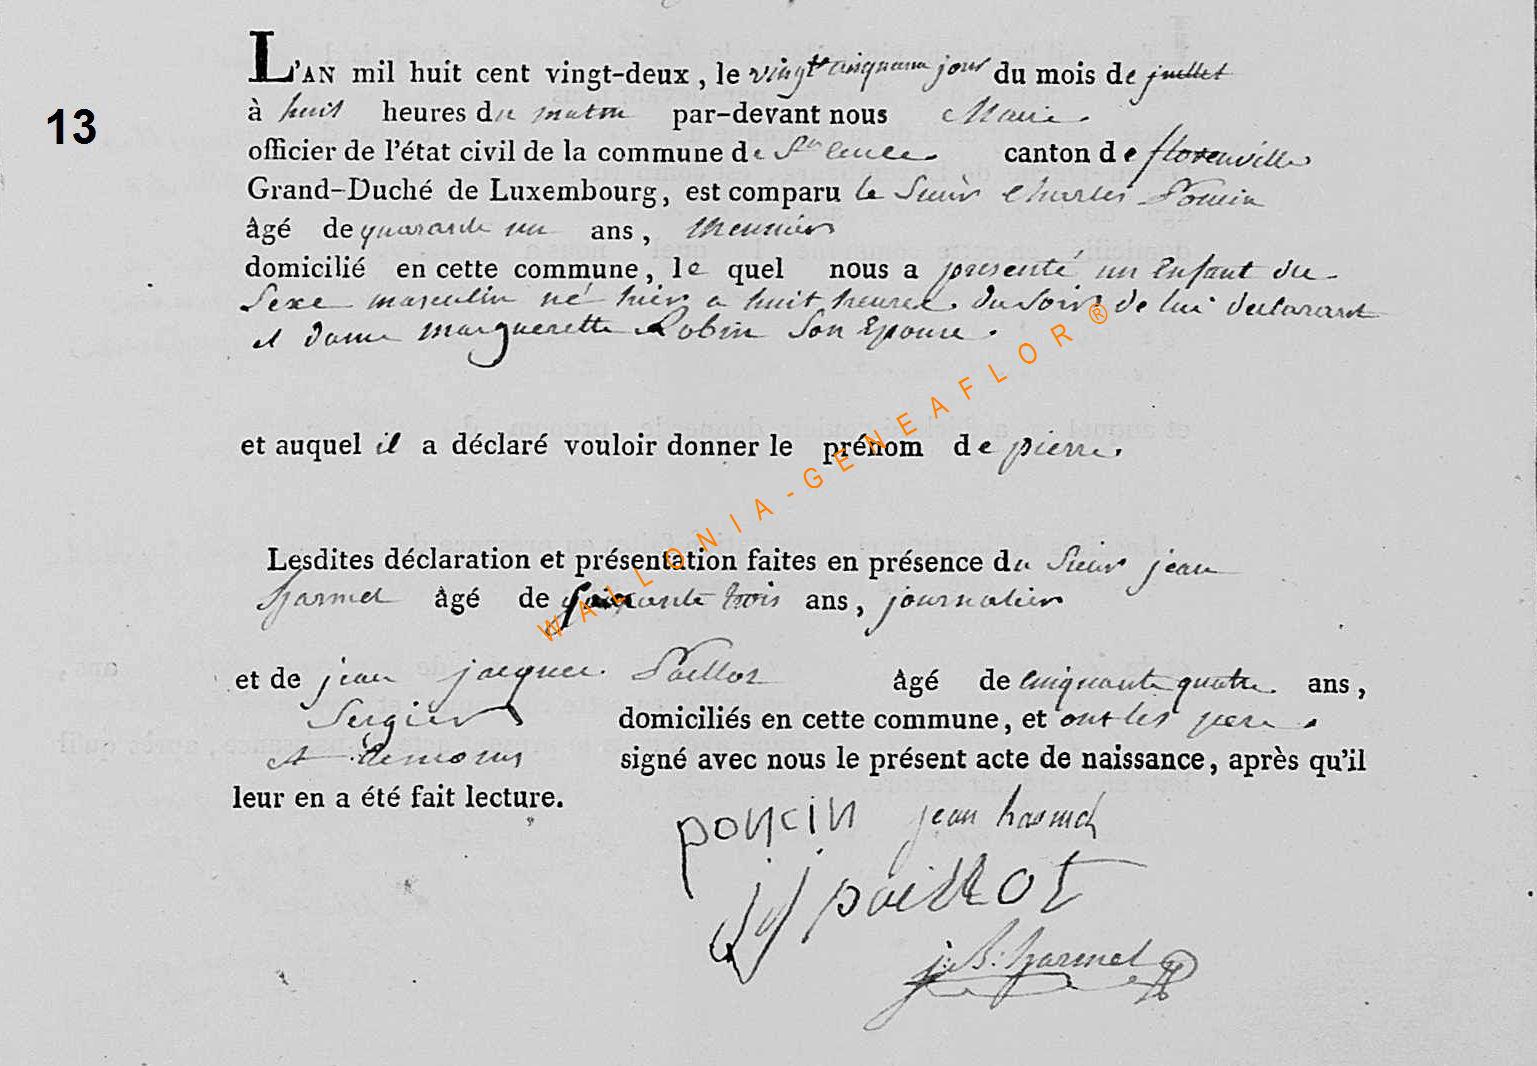 L'AN mil huit cent vingt-deux, le vingt cinquieme jour du mois de juillet
13
à huit heures du matin par-devant nous Maire.
officier de l'état civil de la commune de Ste Cecile. canton de florenville
Grand-Duché de Luxembourg, est comparu le Sieur Charles Poncin
âgé de quarante un ans, Meunier
domicilié en cette commune, le quel nous a presenté un Enfant du
Sexe masculin né hier a huit heures du Soir de lui declarant
et dame marguerette Robin Son Epouse.
et auquel il a déclaré vouloir donner le prénom de pierre.
Lesdites déclaration et présentation faites en présence du Sieur jean
harmel âgé de soixante trois ans, journalier
et de jean jacques Paillot âgé de cinquante quatre ans,
Sergier domiciliés en cette commune, et ont les pere
et temoins signé avec nous le présent acte de naissance, après qu'il
leur en a été fait lecture.
poncin jean harmel
jj paillot
j: B: harmel
WALLONIA-GENEAFLOR®